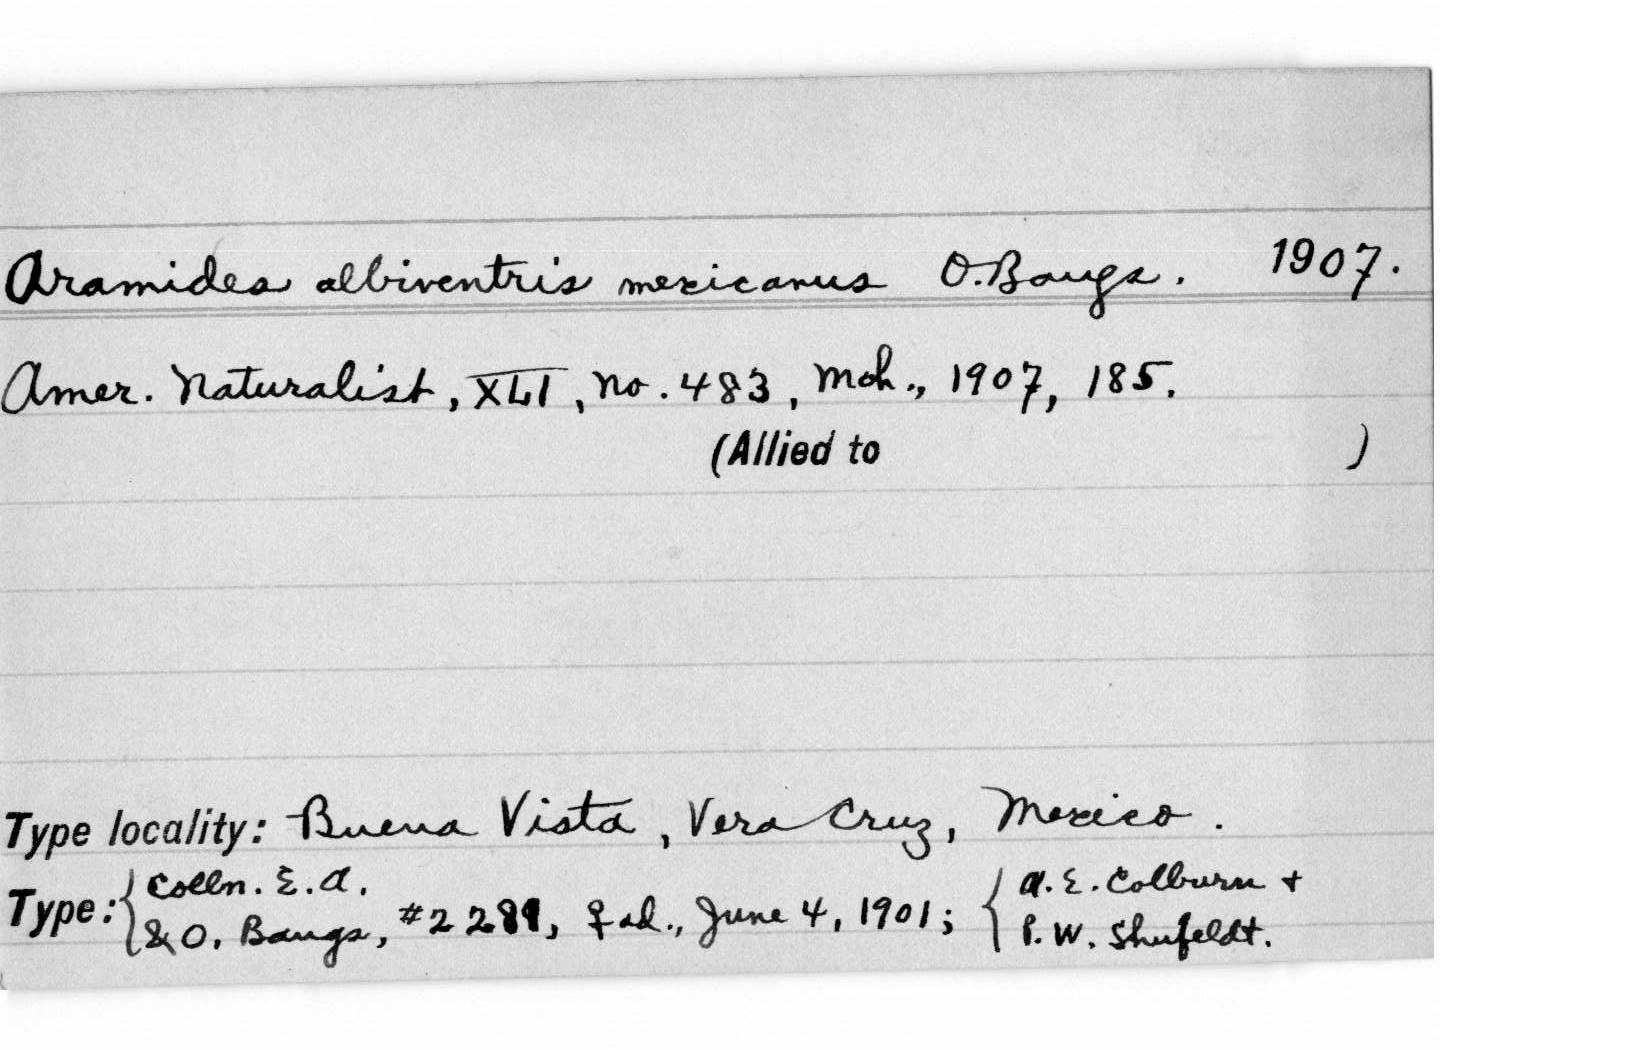 Aramides albiventris mexicanus O. Bangs. 1907.
Amer. Naturalist, XLI, no. 483, Mch., 1907, 185.
(Allied to )
Type locality: Buena Vista, Vera Cruz, Mexico.
Type: { Colln. E. A. & O. Bangs, ♀ ad., June 4, 1901; { A. E. Colburn + P. W. Shufeldt.